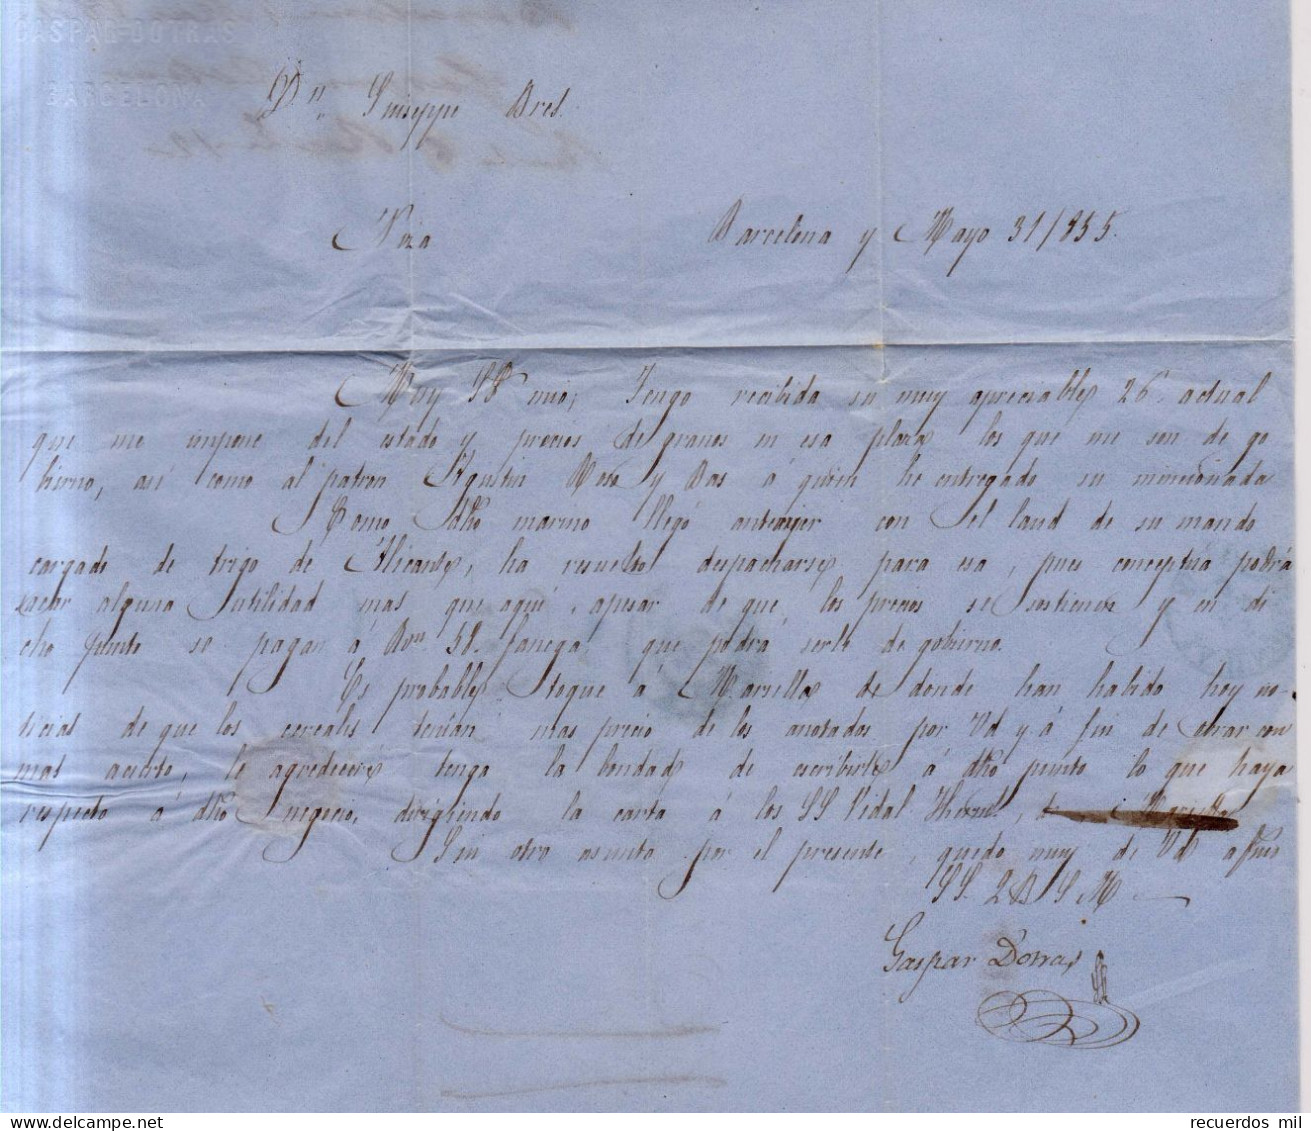 GASPAR DOTRAS
BARCELONA
Dn. Guiseppe Bres.
Niza
Barcelona y Mayo 31/855.
Muy Sr mio; Tengo recibida su muy apreciable 26 actual
que me impone del estado y precios de granos en esa plaza los que me son de go
bierno, asi como al patron Agustin Rosa y Bas á quien he entregado su mencionada
Como dho marino llegó anteayer con el laud de su mando
cargado de trigo de Alicante, ha resuelto despacharse para esa, pues conceptua podrá
sacar alguna utilidad mas que aquí, apesar de que los precios se sostienen y en di
cho punto se pagan á Rvn. 58. fanega que podrá serle de gobierno.
Es probable toque a Marsella de donde han habido hoy no-
ticias de que los cereales tenian mas precio de los anotados por Vd y á fin de obrar con
mas acierto, le agradeceré tenga la bondad de escribirle á dho punto lo que haya
respecto á dho negocio, dirigiendo la carta á los SS Vidal
Sin otro asunto por el presente, quedo muy de Vd affmo
SS. Q B S M
Gaspar Dotras
recuerdos mil